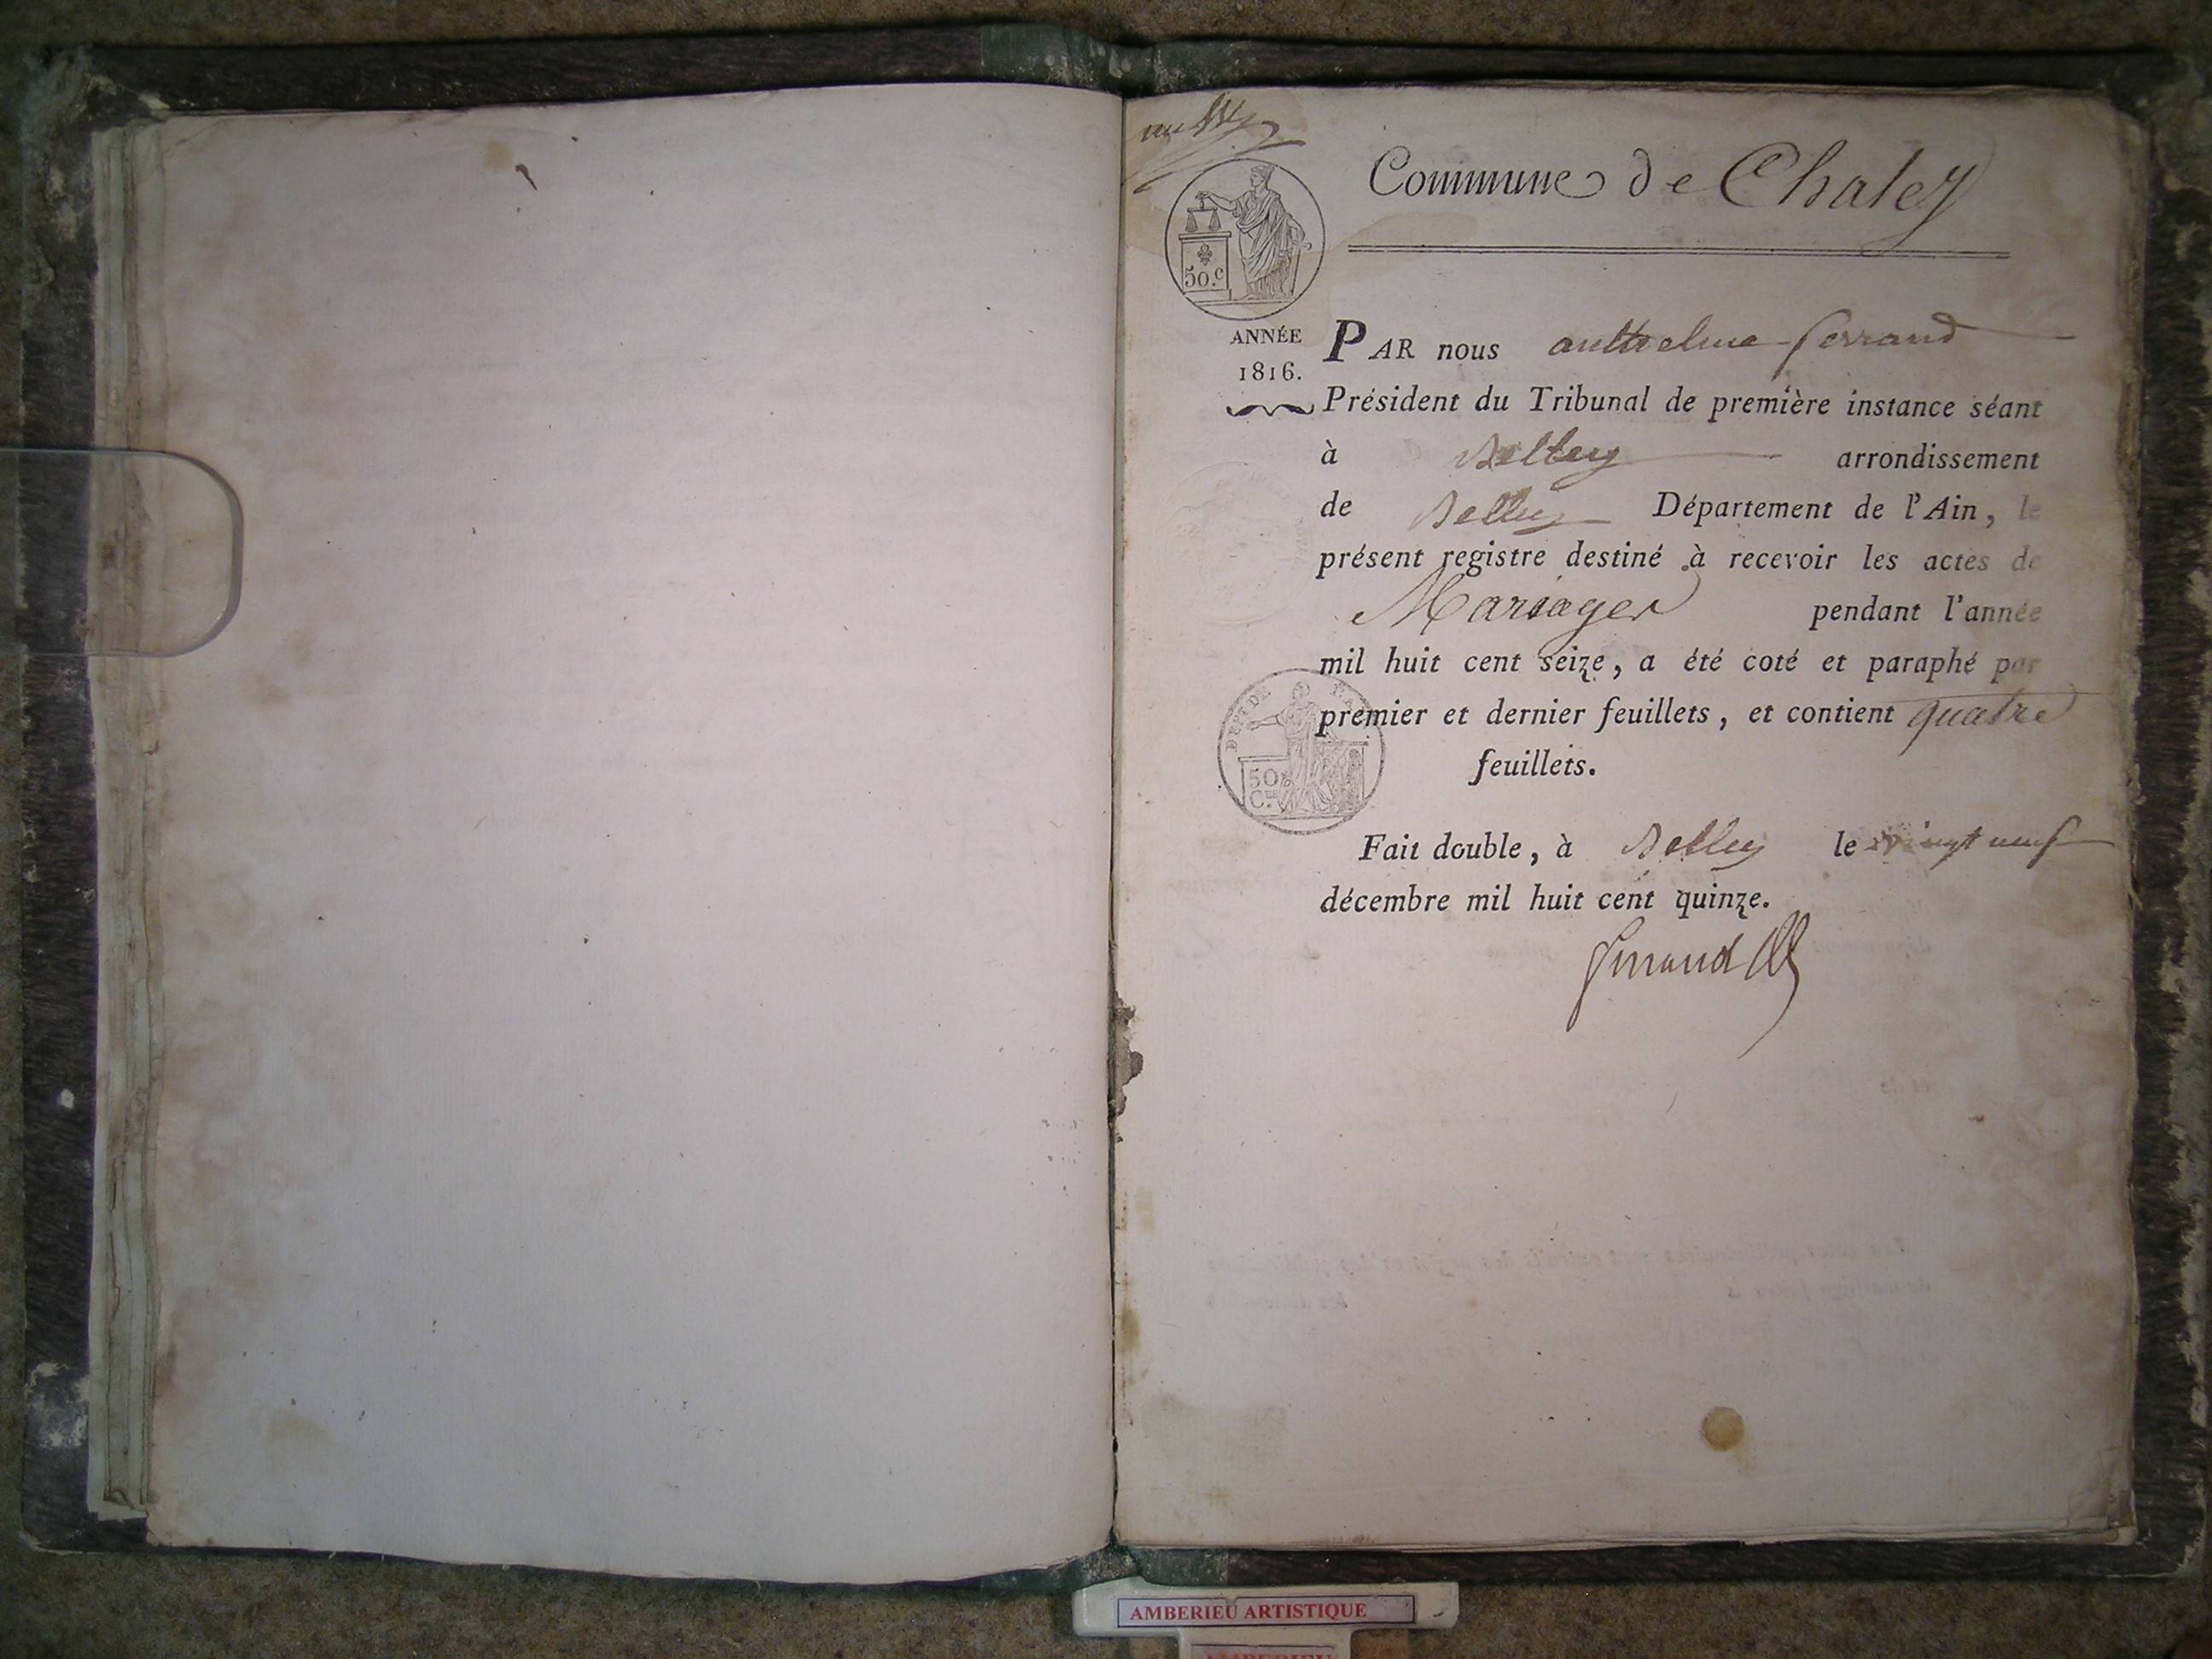 Commune de Chaley
50.c
ANNÉE
1816.
PAR nous anthelme ferrand
Président du Tribunal de première instance séant
à Belley arrondissement
de Belley Département de l'Ain, le
présent registre destiné à recevoir les actes de
Mariages pendant l'année
mil huit cent seize, a été coté et paraphé par
premier et dernier feuillets, et contient quatre
feuillets.
50
C.es
Fait double, à Belley le vingt neuf
décembre mil huit cent quinze.
AMBERIEU ARTISTIQUE
AMBERIEU